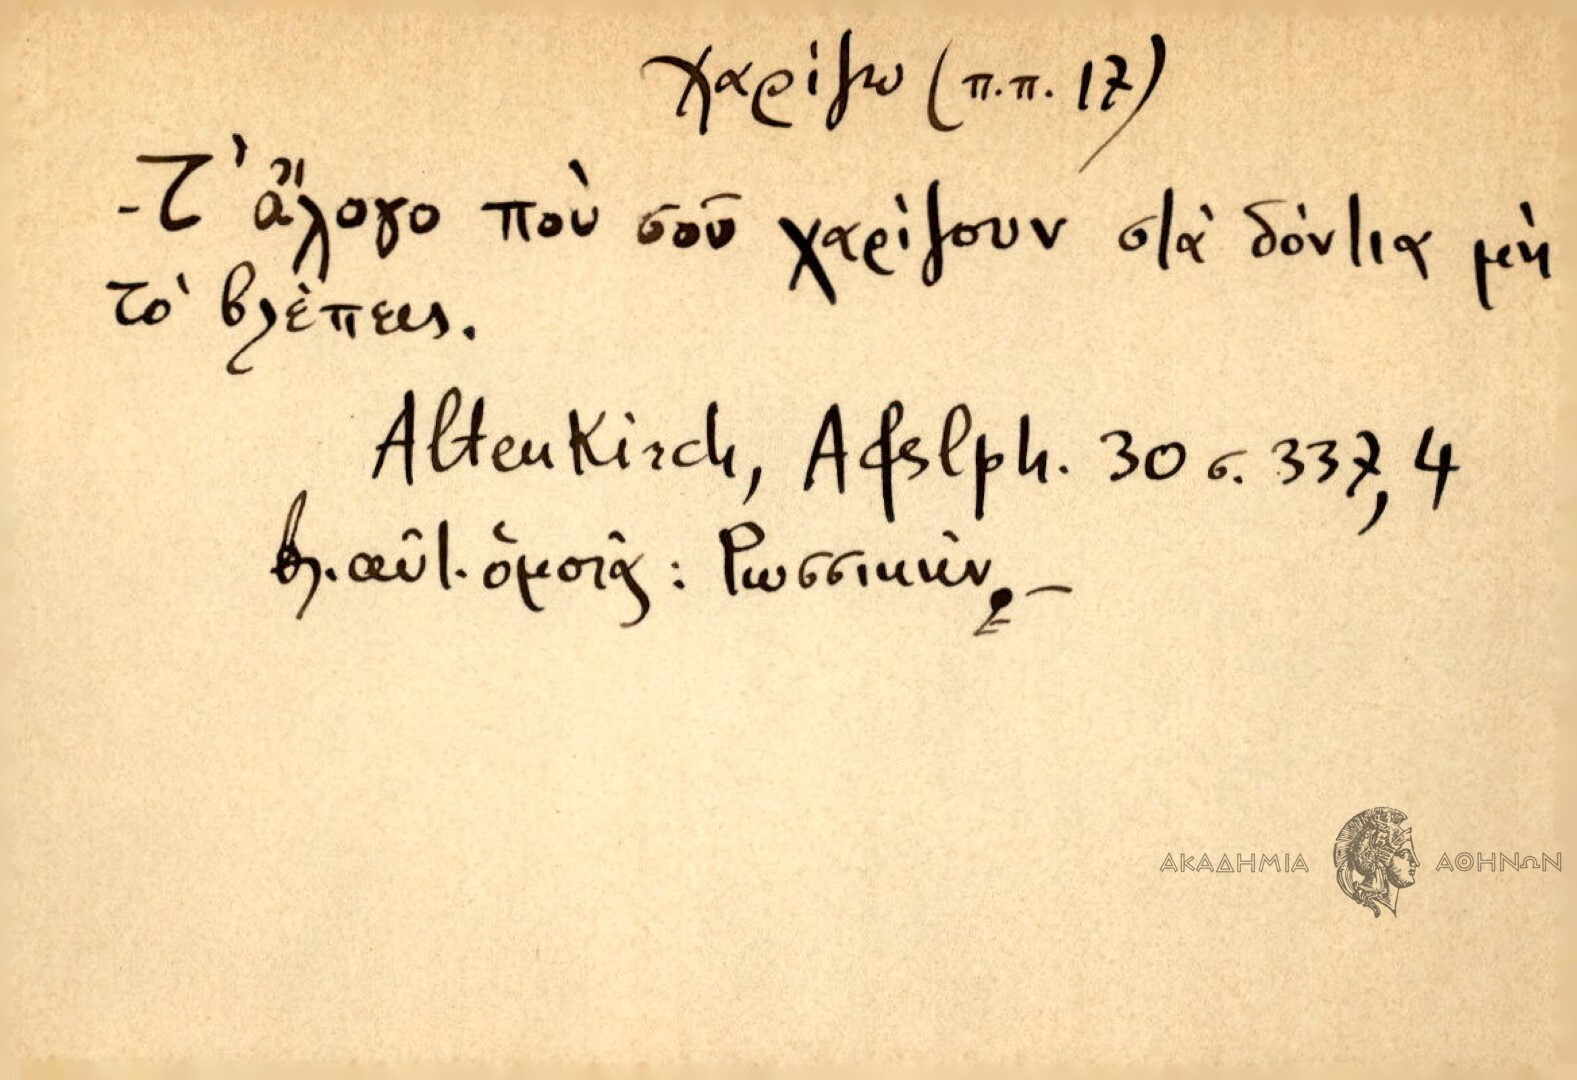 χαρίζω (π.π. 17)
- Τ' ἄλογο ποὺ σοῦ χαρίζουν στὰ δόντια μὴ
τὸ βλέπεις.
Altenkirch, Afslph. 30 σ. 337, 4
βλ. αὐτ. ὁμοιᾶς : Ρωσσικὴν
ΑΚΑΔΗΜΙΑ ΑΘΗΝΩΝ